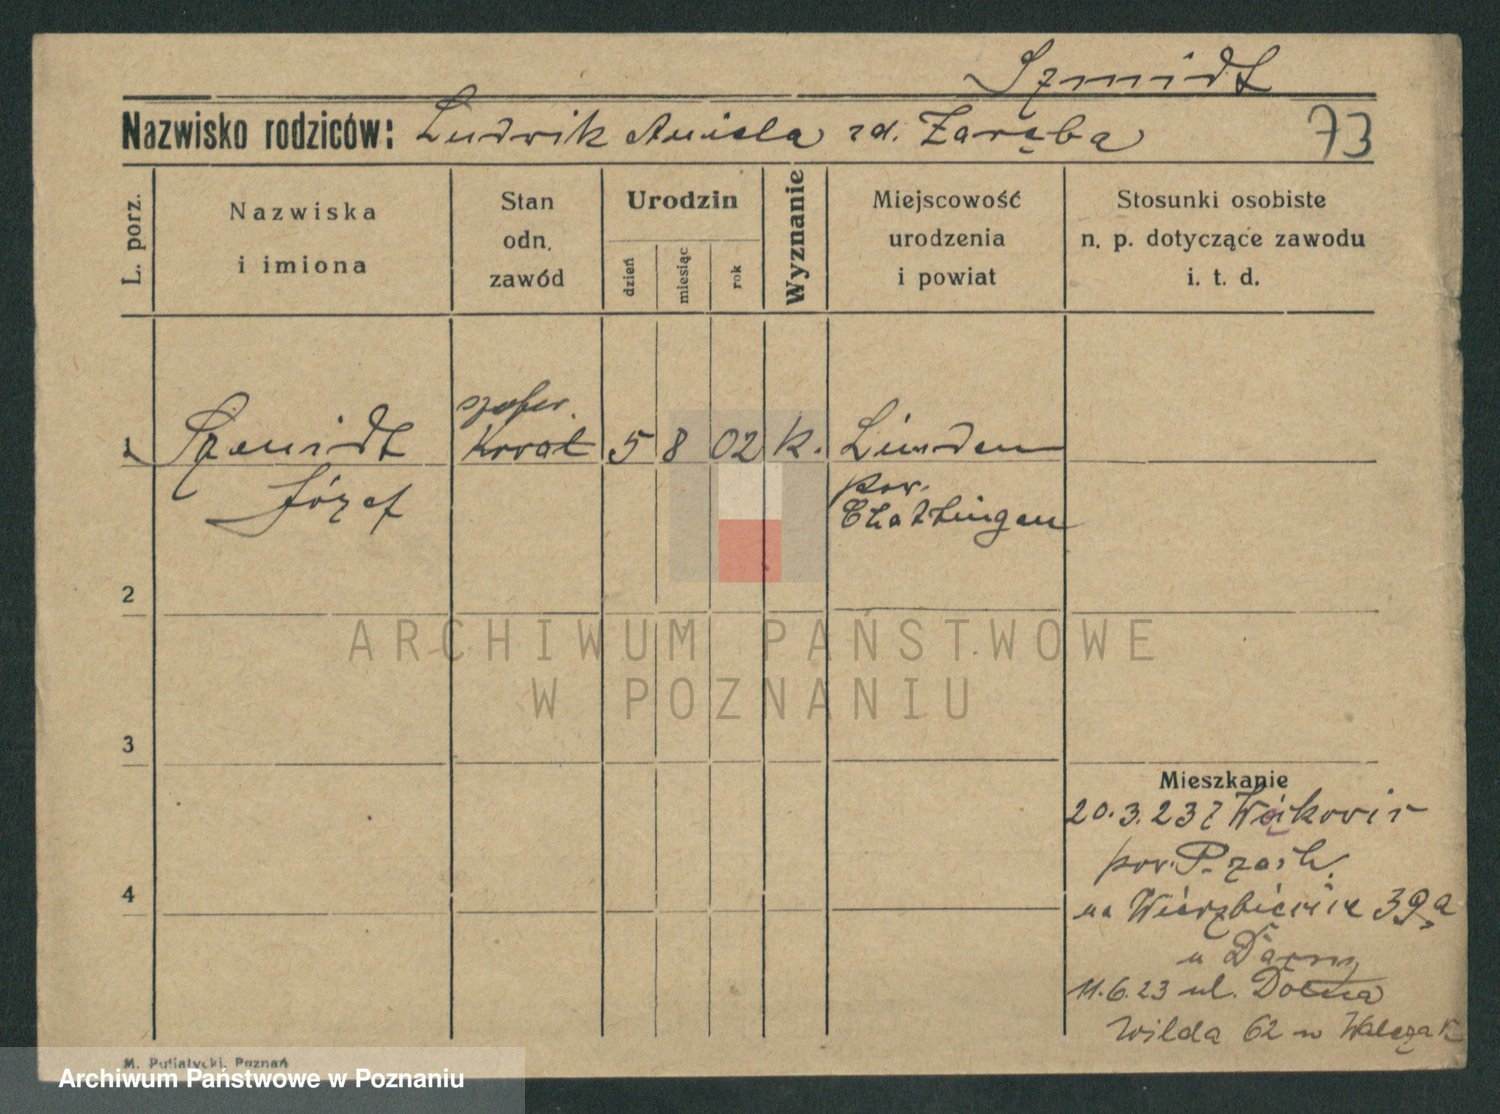 Szmidt
Nazwisko rodziców: Ludwik Aniela zd. Zaręba 73
L. porz.
Nazwiska
i imiona
Stan
odn.
zawód
Urodzin
dzień
miesiąc
rok
Wyznanie
Miejscowość
urodzenia
i powiat
Stosunki osobiste
n. p. dotyczące zawodu
i. t. d.
szofer.
1 Szmidt 5 8 02 k. Linden
Józef
pow.
Chattingen
2
ARCHIWUM PAŃSTWOWE
W POZNANIU
3
Mieszkanie
20.3.23 z
pow.
4
na Wierzbięcice 39a
u
11.6.23 ul. Dolna
Wilda 62 u Walczak
M. Putiatycki, Poznań
Archiwum Państwowe w Poznaniu